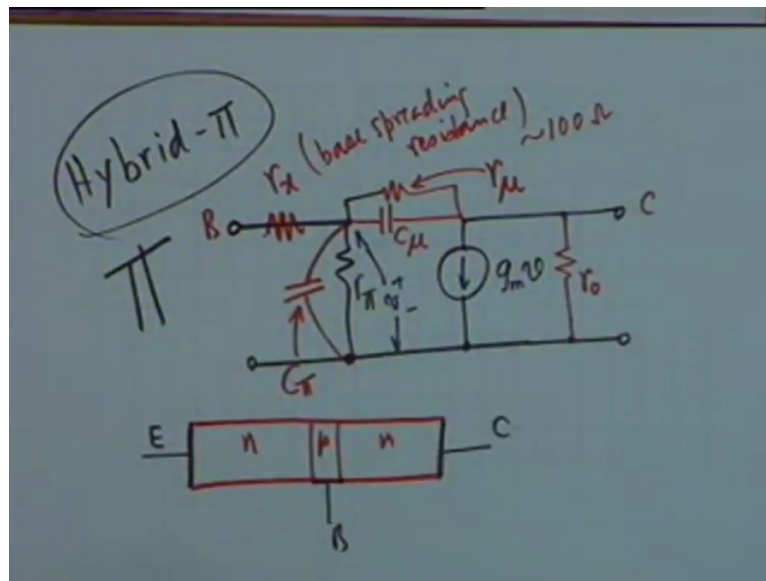 Hybrid-π
π
rx (base spreading
resistance) ~100Ω
rμ
B
Cμ
C
rπ
v
+
-
gmv
r0
Cπ
E
n
p
n
C
B